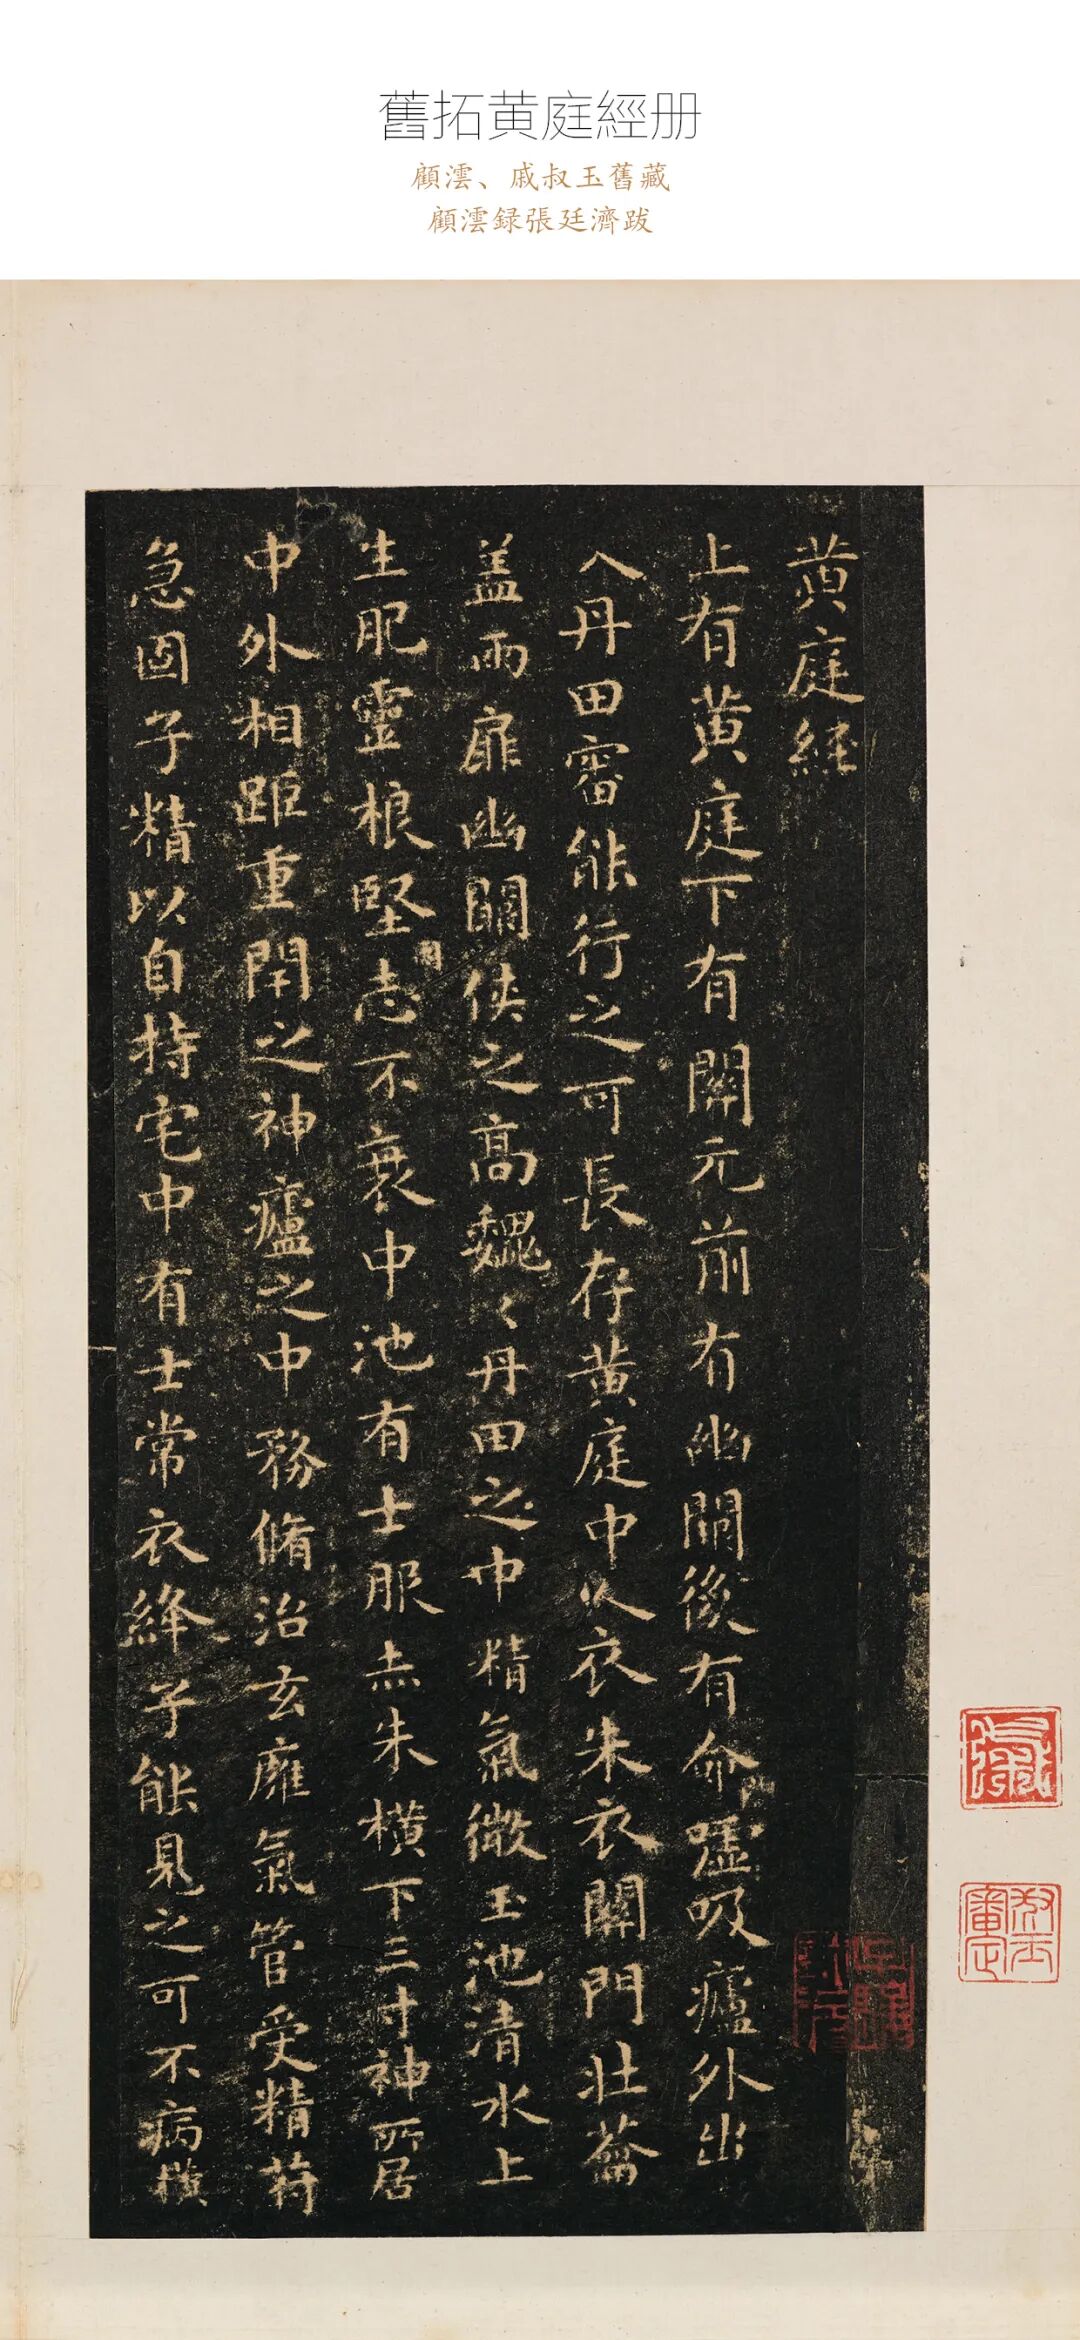 舊拓黄庭經册
顧澐、戚叔玉舊藏
顧澐録張廷濟跋
黄庭經
上有黄庭下有關元前有幽闕後有命噓吸廬外出
入丹田審能行之可長存黄庭中人衣朱衣關門壯蘥
盖兩扉幽闕俠之高魏〻丹田之中精氣微玉池清水上
生肥靈根堅志不衰中池有士服赤朱横下三寸神所居
中外相距重閇之神廬之中務脩治玄廱氣管受精符
急固子精以自持宅中有士常衣絳子能見之可不病横
叔玉審定